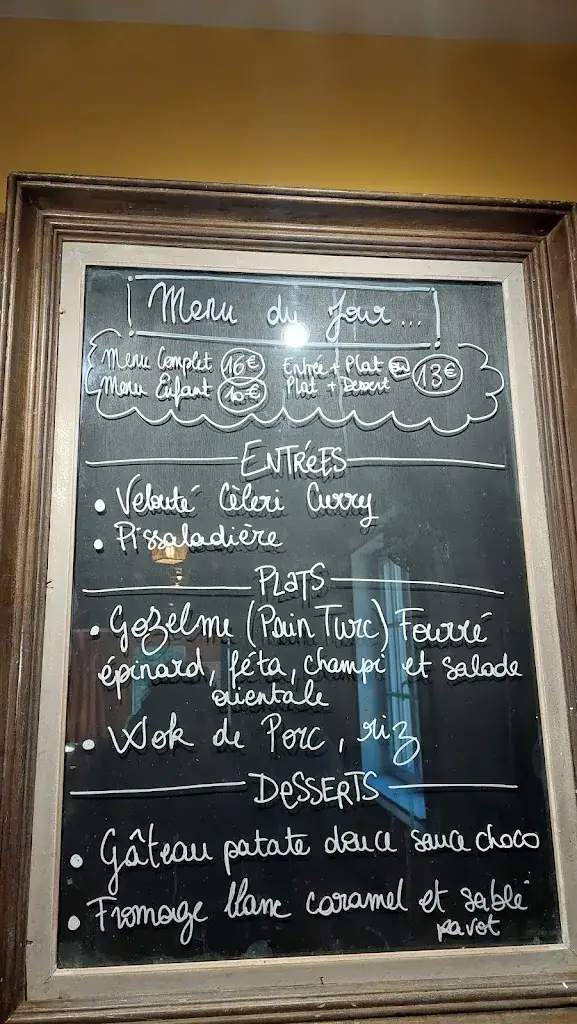 Menu du Jour...
Menu Complet 16€ Entrée + Plat ou 13€
Menu Enfant 10€ Plat + Dessert
ENTRÉES
• Velouté Cèleri Curry
• Pissaladière
PLATS
• Gozelme (Pain Turc) Fourré
épinard, féta, champi et salade
orientale
• Wok de Porc, riz
DESSERTS
• Gâteau patate douce sauce choco
• Fromage blanc caramel et sablé
pavot